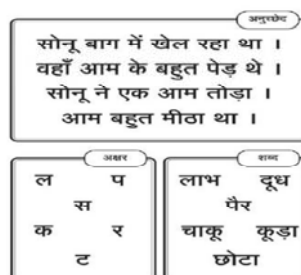 अनुच्छेद
सोनू बाग में खेल रहा था ।
वहाँ आम के बहुत पेड़ थे ।
सोनू ने एक आम तोड़ा ।
आम बहुत मीठा था ।
अक्षर
ल प
स
क र
ट
शब्द
लाभ दूध
पैर
चाकू कूड़ा
छोटा